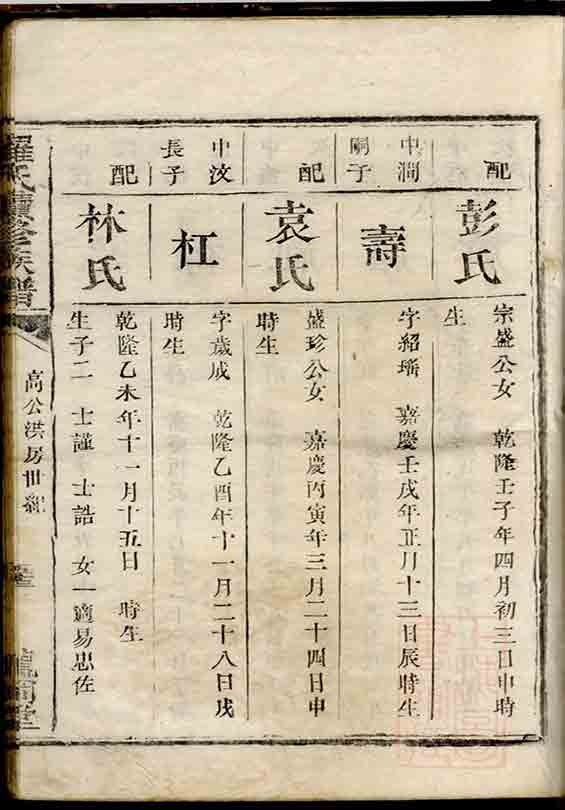 配
彭氏
宗盛公女 乾隆壬子年四月初三日申時
生
中澗
嗣子
壽
字紹瑤 嘉慶壬戌年正月十三日辰時生
配
袁氏
盛珍公女 嘉慶丙寅年三月二十四日申
時生
中汶
長子
杠
字歲成 乾隆乙酉年十一月二十八日戌
時生
配
林氏
乾隆乙未年十一月十五日 時生
生子二 士謹 士誥 女一適易忠佐
羅氏續修族譜
高公洪房世紀